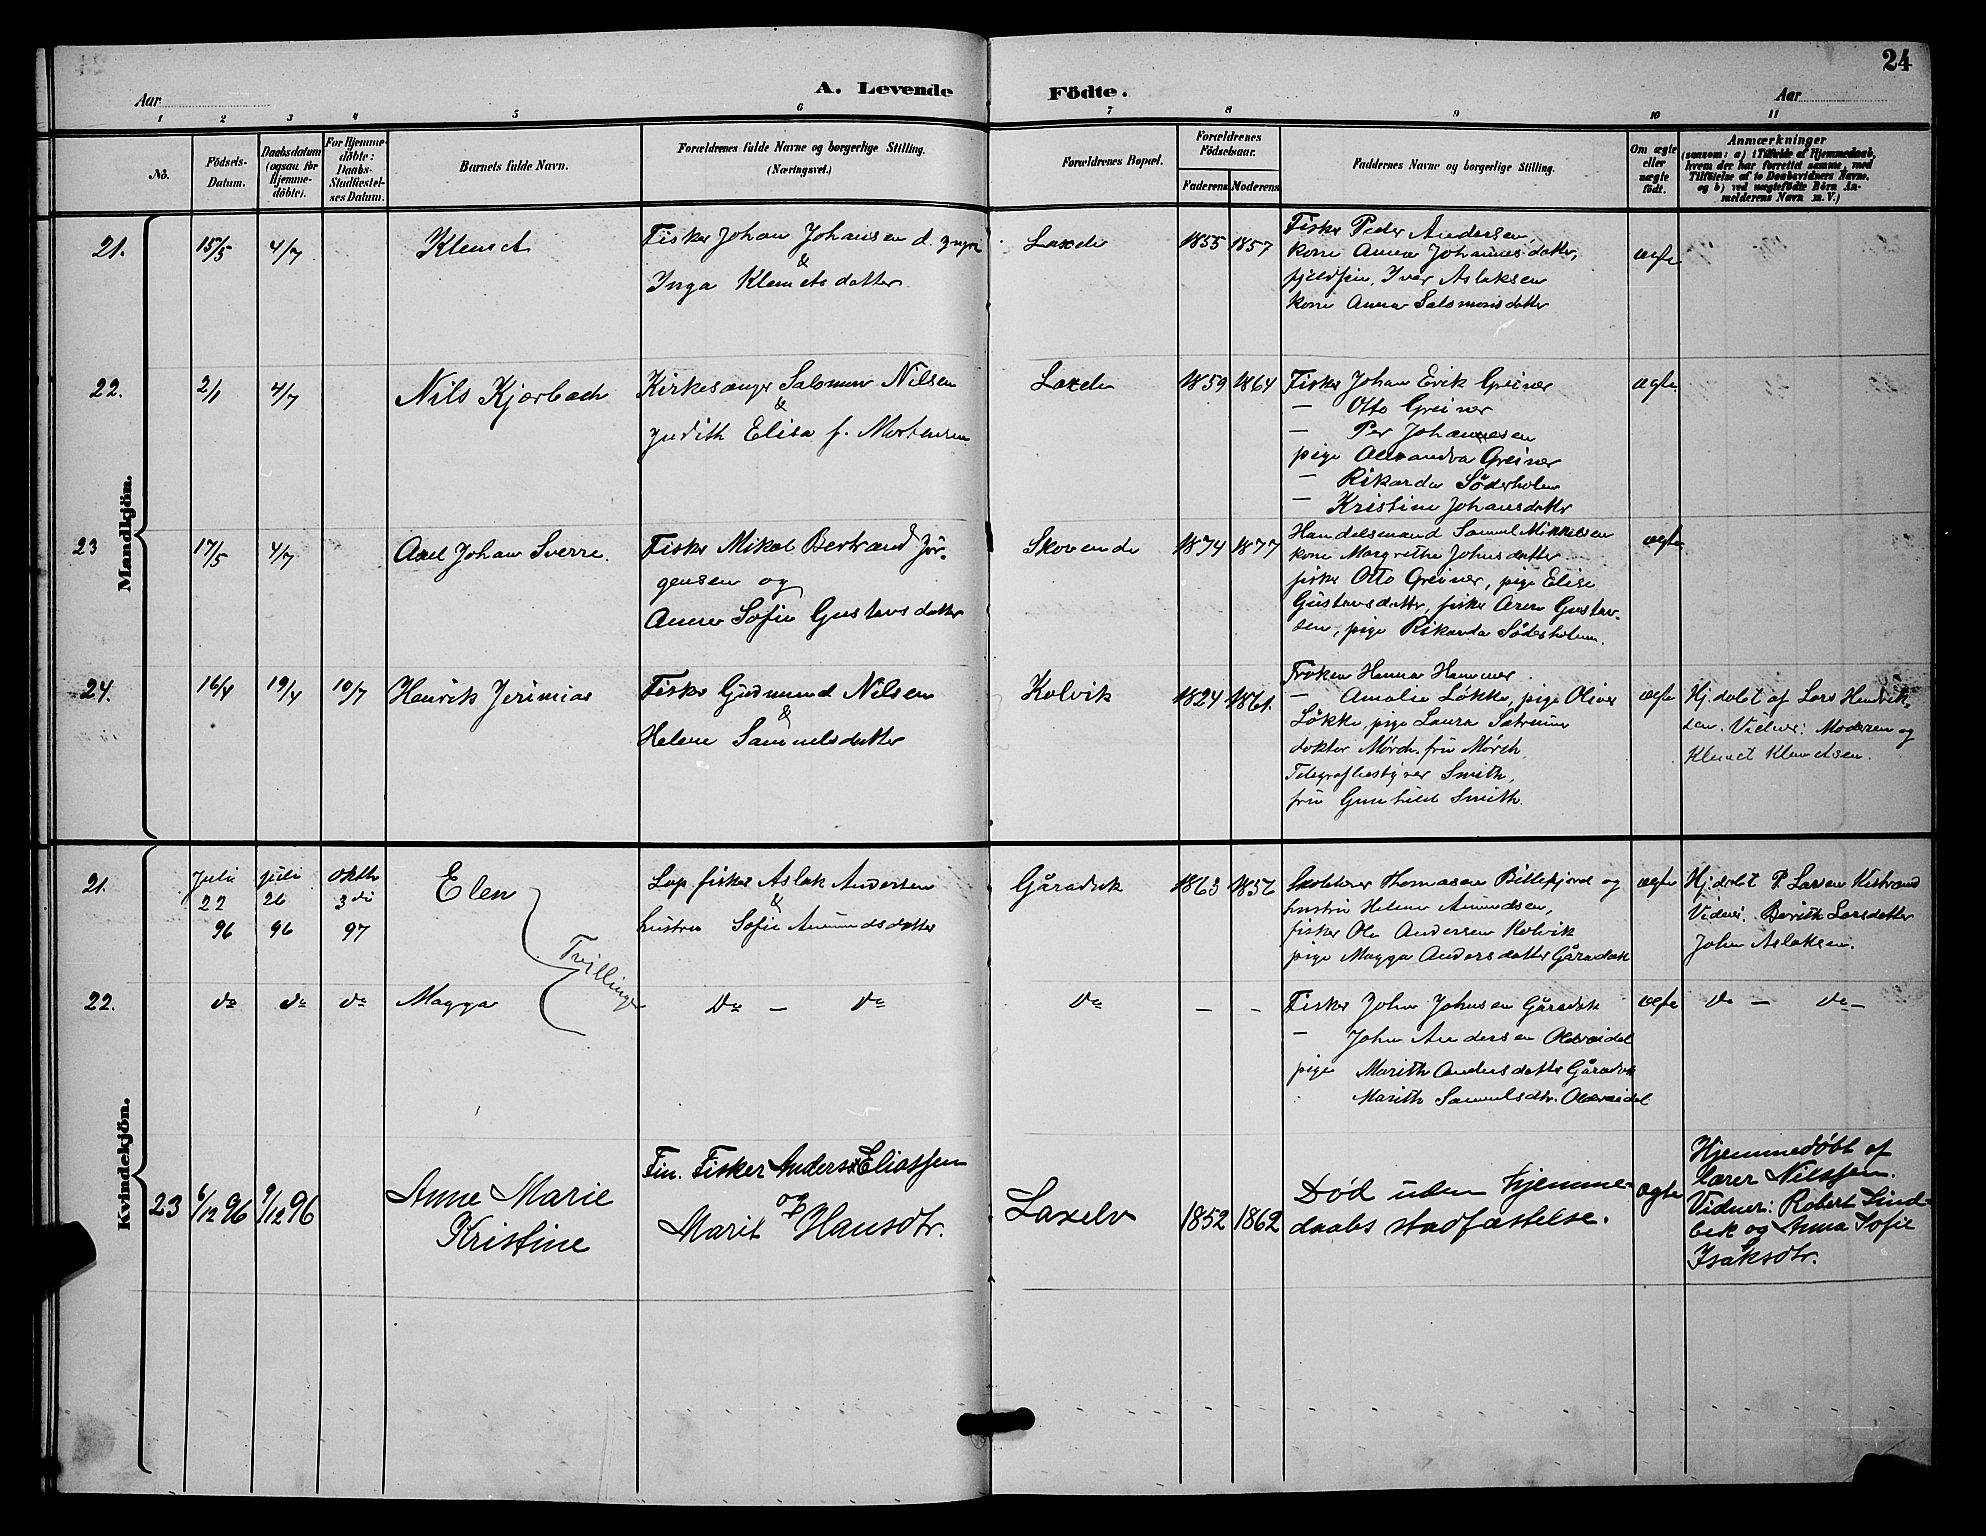 24
Aar
A. Levende Födte.
Aar
1 2 3 4 5 6 7 8 9 10 11
No.
Födsels-
Datum.
Daabsdatum
(ogsaa for
Hjemme-
döbte).
For Hjemme-
döbte:
Daabs-
Stadfæstel-
ses Datum.
Barnets fulde Navn.
Forældrenes fulde Navne og borgerlige Stilling.
(Næringsvei.)
Forældrenes Bopæl.
Forældrenes
Födselsaar.
Faderens
Moderens
Faddernes Navne og borgerlige Stilling.
Om ægte
eller
uægte
födt.
Anmærkninger
(saasom: a) i Tilfælde af Hjemmedaab,
hvem der har forrettet samme, med
Tilföielse af to Daabsvidners Navne,
og b) ved uægtefödte Börn An-
melderens Navn m. V.)
Mandkjön.
21. 15/5 4/7 Klemet
Fisker Johan Johansen d. yngre
&
Inga Klemetsdatter
Laxelv 1855 1857
Fisker Peder Andersen,
kone Anna Johannesdatter,
fjeldfin. Iver Aslaksen
kone Anna Salomonsdatter
ægte
22. 2/1 4/7 Nils Kjærbech
Kirkesanger Salomon Nilsen
&
Judith Elisa f. Mortensen
Laxelv 1859 1864
Fisker Johan Erik Greiner
— Otto Greiner
— Per Johannesen
pige Alexandra Greiner
— Rikarda Söderholm
— Kristine Johansdatter
ægte
23 17/5 4/7 Axel Johan Sverre.
Fisker Mikal Bertrand Jør-
gensen og
Anna Sofie Gustavsdatter
Skovende 1874 1877
Handelsmand Samuel Mikkelsen
kone Margrethe Johnsdatter
fisker Otto Greiner, pige Elise
Gustavsdatter, fisker Aron Gustav-
sen, pige Rikarda Söderholm
ægte
24. 16/4 19/4 10/7 Henrik Jerimias
Fisker Gudmund Nilsen
&
Helene Samuelsdatter
Kolvik 1824 1861.
Frøken Hanna Hammer.
— Amalie Løkke, pige Oliva
Løkke, pige Laura
doktor Mørch. fru Mørch
Telegrafbestyrer Smith,
fru Gunhild Smith.
ægte
Hj. døbt af Lars Hendrik-
sen. Vidner: Moderen og
Klemet Klemetsen.
Kvindekjön.
21. Juli 22 96 juli 26 96 oktbr 3die 97
Elen
Lap fisker Aslak Andersen
&
hustru Sofie Amundsdatter
Gåradak 1863 1856
Skolelærer Thomasen Billefjord og
hustru Helene Amundsen,
fisker Ole Andersen Kolvik
pige Magga Andersdatter Gåradak
ægte
Hj. døbt P. Larsen Kistrand
Vidner: Berith Larsdatter
John Aslaksen.
Tvillinger
22. do do do Magga
do — do
do — —
Fisker John Johnsen Gåradak
— John Andersen Oldereidet
pige Marith Andersdatter Gåradak
Marith Samuelsdtr. Oldereidet
ægte do — do —
23 6/12 96 9/12 96 Anne Marie
Kristine
Fin. Fisker Anders Eliassen
og
Marit Hansdtr.
Laxelv 1852 1862
Død uden hjemme-
daabs stadfæstelse.
ægte
Hjemmedøbt af
Lærer Nilssen.
Vidner: Robert Lind-
bek og Anna Sofie
Isaksdtr.